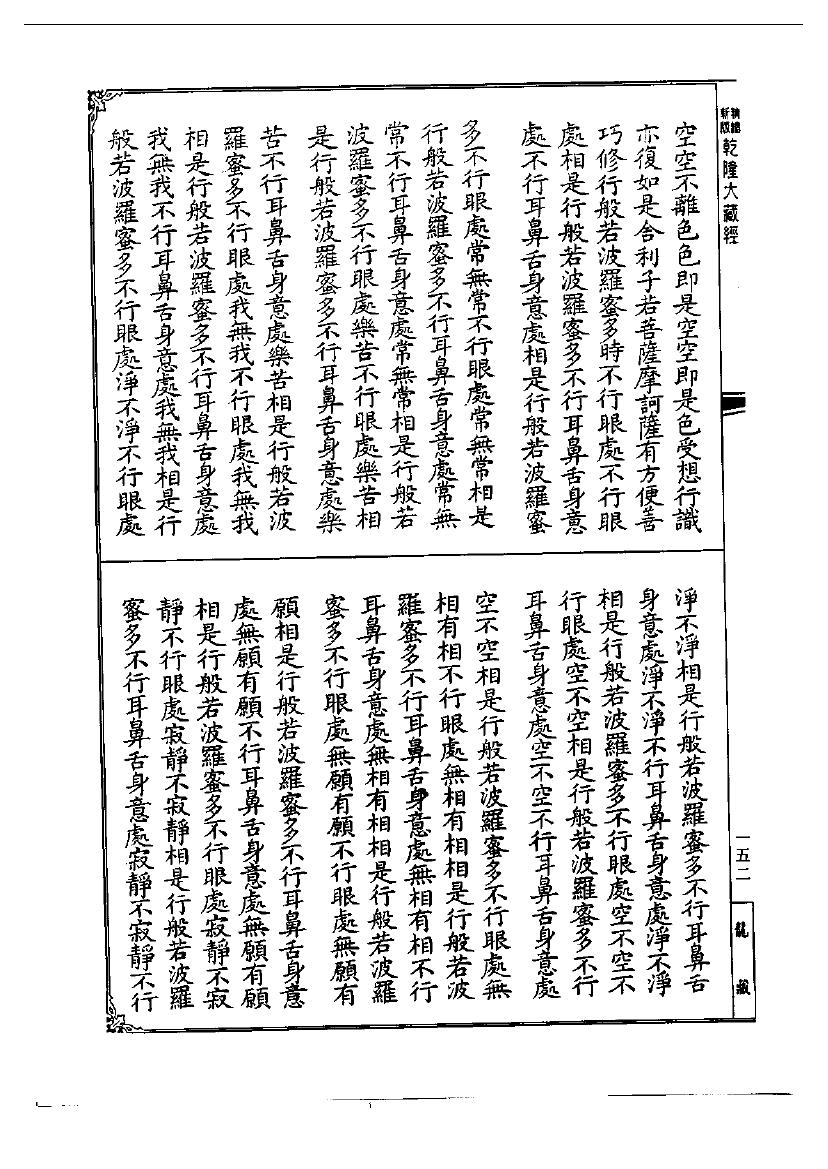 新版
精縮
乾隆大藏經
空空不離色色即是空空即是色受想行識
亦復如是舍利子若菩薩摩訶薩有方便善
巧修行般若波羅蜜多時不行眼處不行眼
處相是行般若波羅蜜多不行耳鼻舌身意
處不行耳鼻舌身意處相是行般若波羅蜜
多不行眼處常無常不行眼處常無常相是
行般若波羅蜜多不行耳鼻舌身意處常無
常不行耳鼻舌身意處常無常相是行般若
波羅蜜多不行眼處樂苦不行眼處樂苦相
是行般若波羅蜜多不行耳鼻舌身意處樂
苦不行耳鼻舌身意處樂苦相是行般若波
羅蜜多不行眼處我無我不行眼處我無我
相是行般若波羅蜜多不行耳鼻舌身意處
我無我不行耳鼻舌身意處我無我相是行
般若波羅蜜多不行眼處淨不淨不行眼處
淨不淨相是行般若波羅蜜多不行耳鼻舌
身意處淨不淨不行耳鼻舌身意處淨不淨
相是行般若波羅蜜多不行眼處空不空不
行眼處空不空相是行般若波羅蜜多不行
耳鼻舌身意處空不空不行耳鼻舌身意處
空不空相是行般若波羅蜜多不行眼處無
相有相不行眼處無相有相相是行般若波
羅蜜多不行耳鼻舌身意處無相有相不行
耳鼻舌身意處無相有相相是行般若波羅
蜜多不行眼處無願有願不行眼處無願有
願相是行般若波羅蜜多不行耳鼻舌身意
處無願有願不行耳鼻舌身意處無願有願
相是行般若波羅蜜多不行眼處寂靜不寂
靜不行眼處寂靜不寂靜相是行般若波羅
蜜多不行耳鼻舌身意處寂靜不寂靜不行
一五二
龍藏